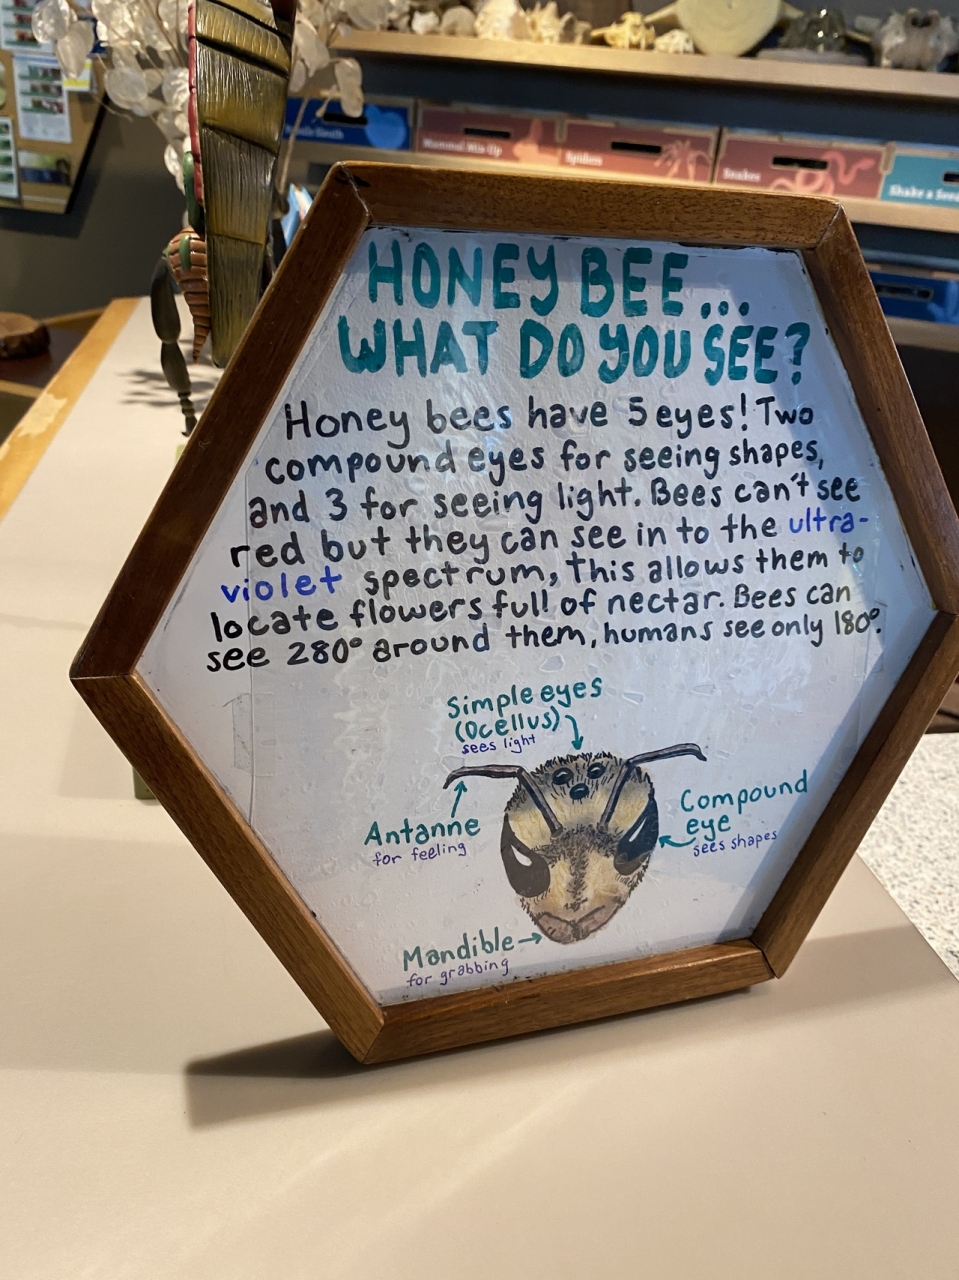 Mammal Mix Up
Spiders
Snakes
HONEY BEE...
WHAT DO YOU SEE?
Honey bees have 5 eyes! Two
compound eyes for seeing shapes,
and 3 for seeing light. Bees can't see
red but they can see in to the ultra-
violet spectrum, this allows them to
locate flowers full of nectar. Bees can
see 280° around them, humans see only 180°.
Simple eyes
(Ocellus)
sees light
Compound
eye
sees shapes
Antanne
for feeling
Mandible
for grabbing